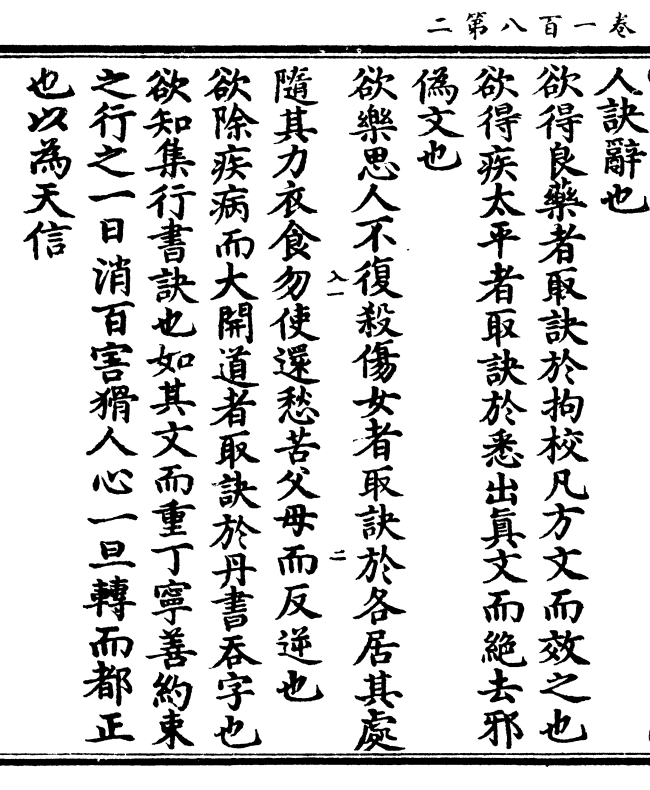 卷一百八第二
人訣辭也
欲得良藥者取訣於拘校凡方文而效之也
欲得疾太平者取訣於悉出真文而絕去邪
偽文也
欲樂思人不復殺傷女者取訣於各居其處
隨其力衣食勿使還愁苦父母而反逆也
欲除疾病而大開道者取訣於丹書吞字也
欲知集行書訣也如其文而重丁寧善約束
之行之一日消百害猾人心一旦轉而都正
也以為天信